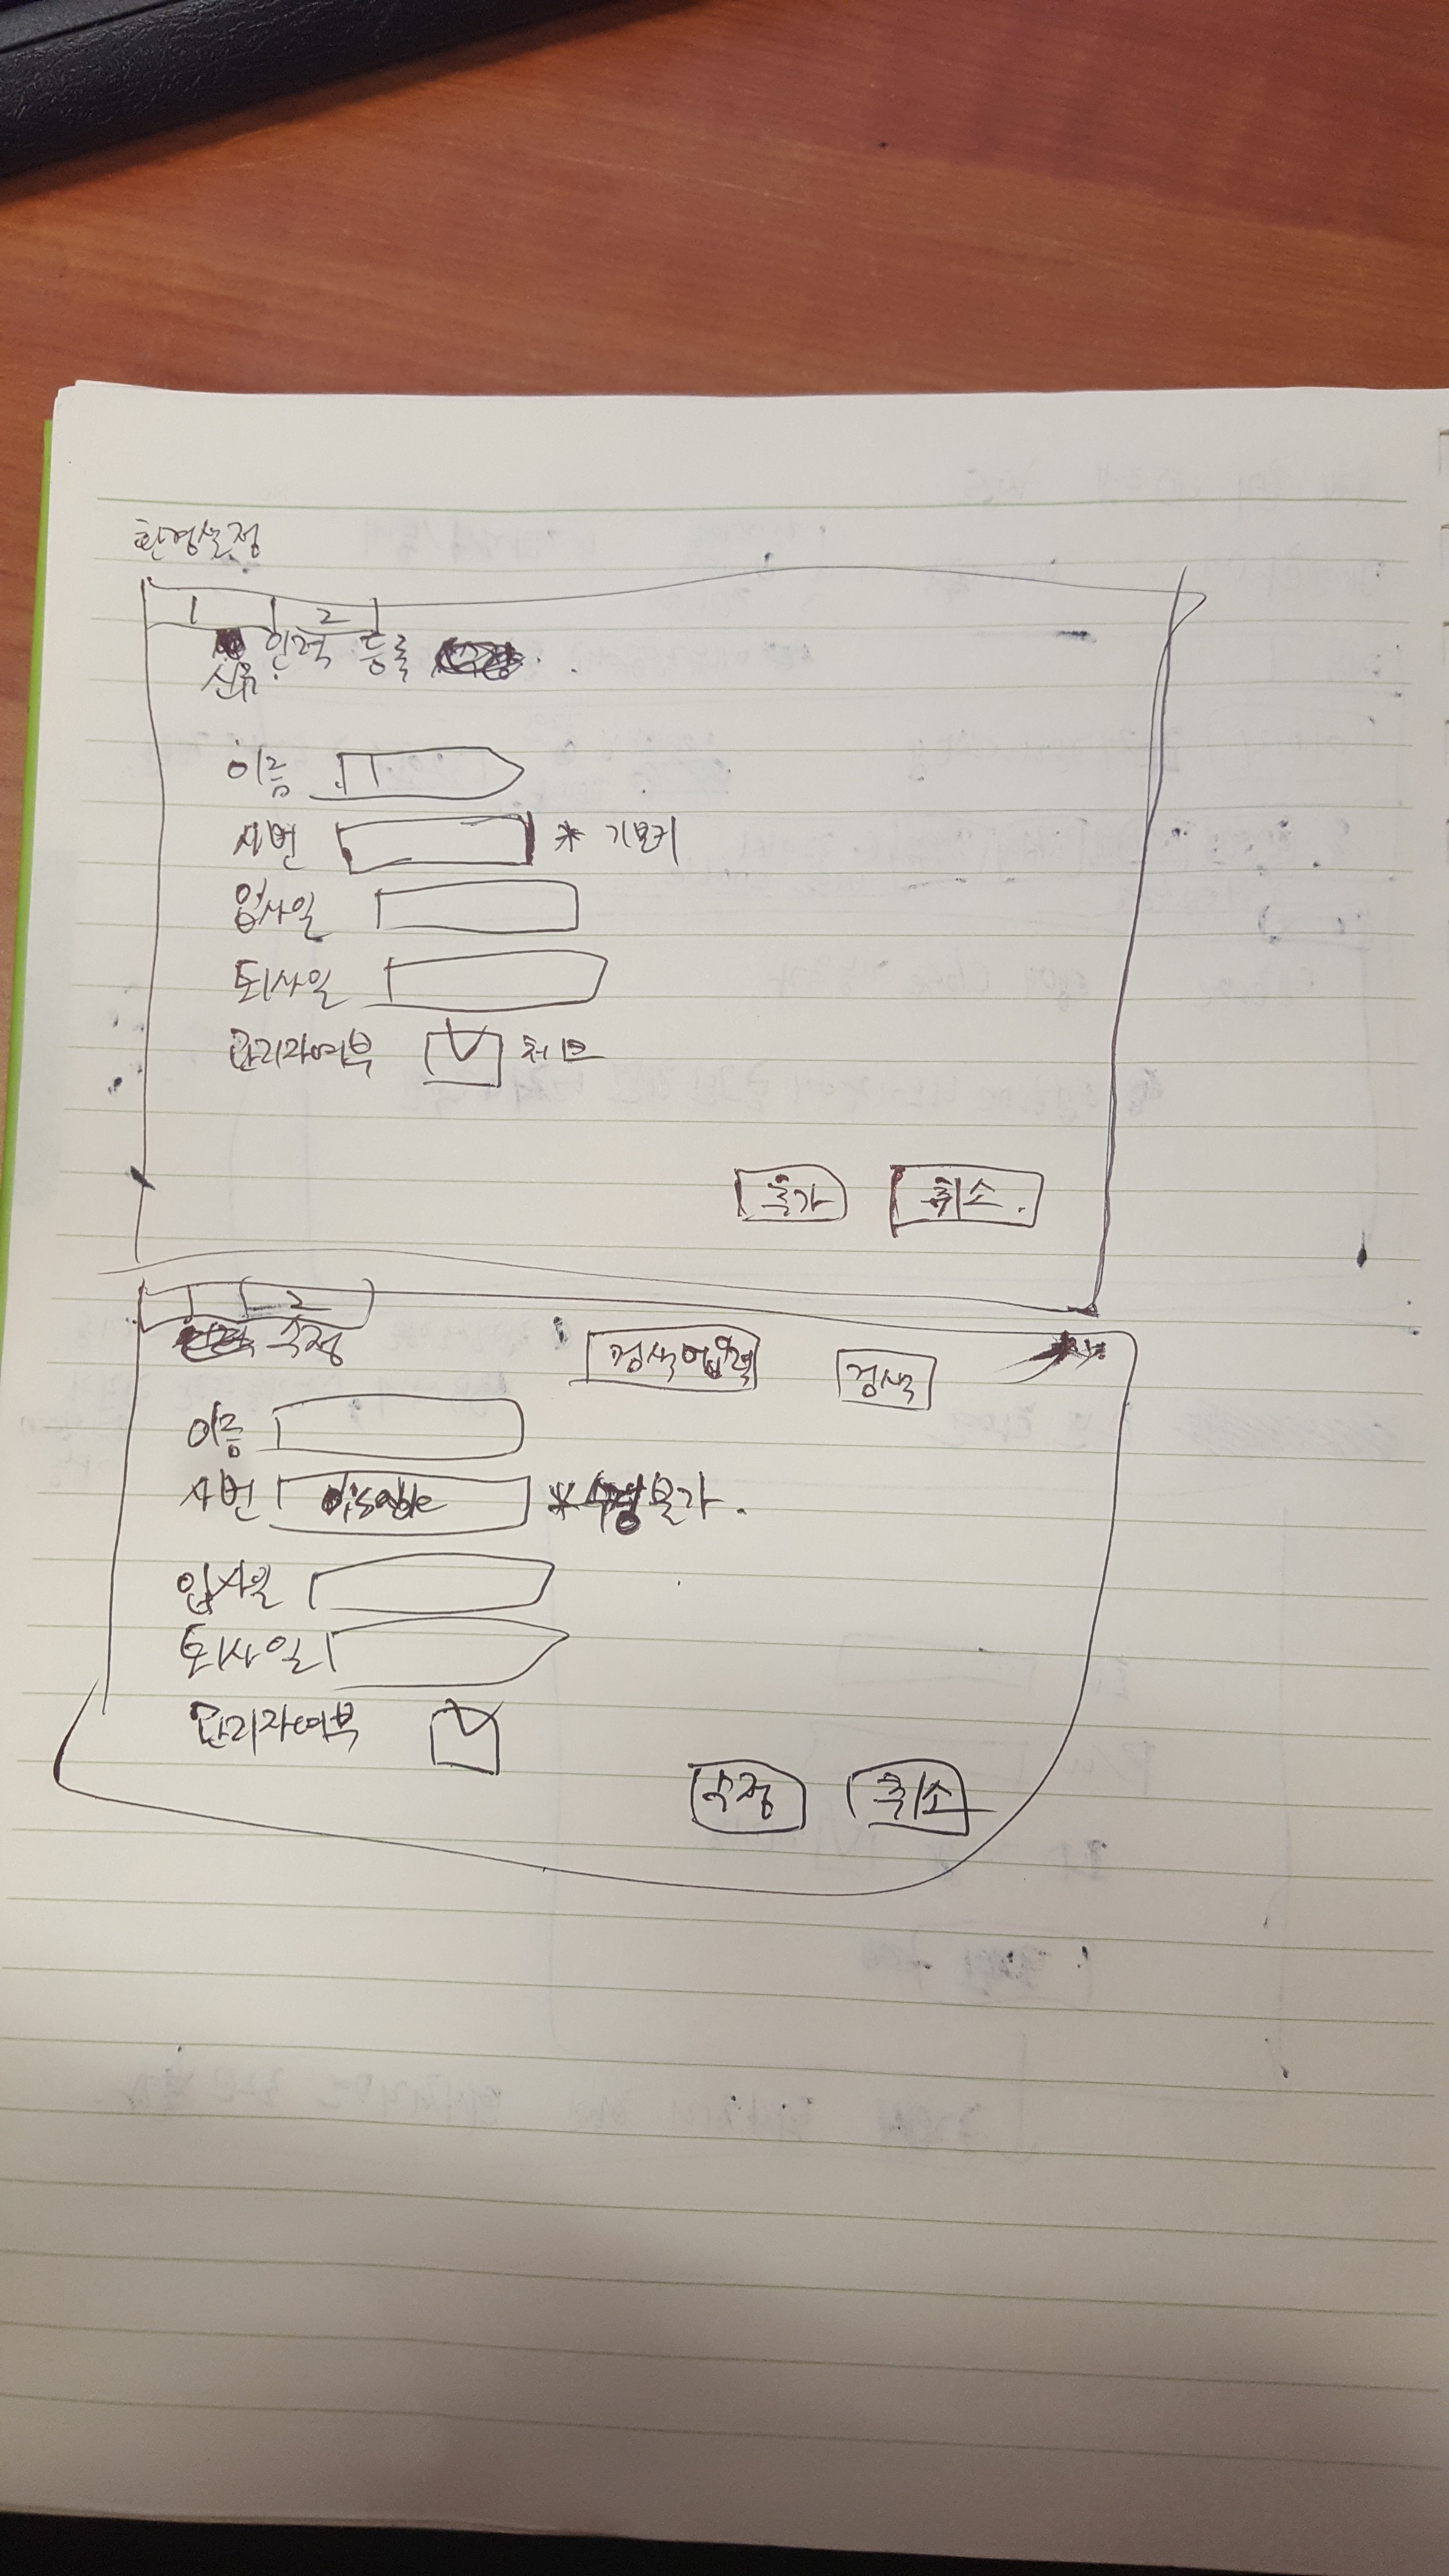 환경설정
1 2
인력 등록
신규
이름
사번 * 기본키
입사일
퇴사일
관리자여부 체크
추가 취소
1 2
수정 검색입력 검색
이름
사번 disable * 수정불가.
입사일
퇴사일
관리자여부
수정 취소